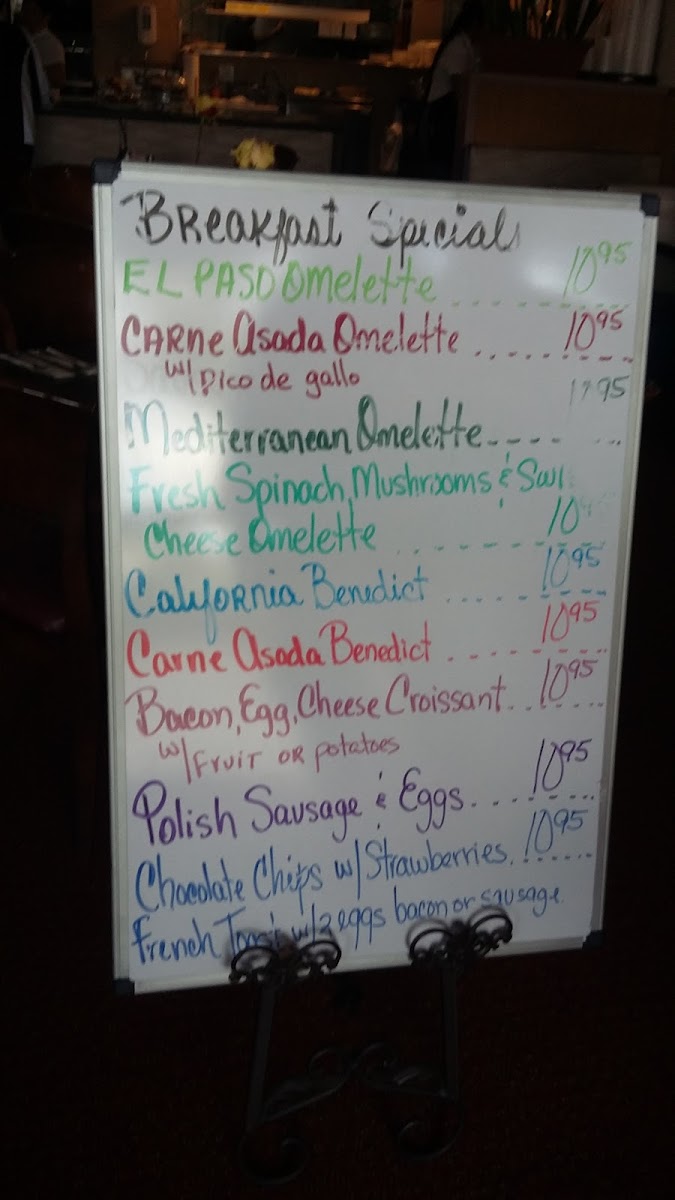 BREAKfast Specials
EL PASO Omelette . . . . . . . . . 10 95
CARNe Asada Omelette . . . . . . . . . 10 95
w/ Pico de gallo
Mediterranean Omelette - - - - . . . 95
Fresh Spinach, Mushrooms &
Cheese Omelette . . . . . . . . . 10
California Benedict . . . . . . . . . 10 95
Carne Asada Benedict . . . . . . . . . 10 95
Bacon, Egg, Cheese Croissant . . . . . . 10 95
w/ FRUIT OR potatoes
Polish Sausage & Eggs . . . . . . . . 10 95
Chocolate Chips w/ Strawberries . . . . . . . 10 95
French Toast w/ 2 eggs bacon or sausage